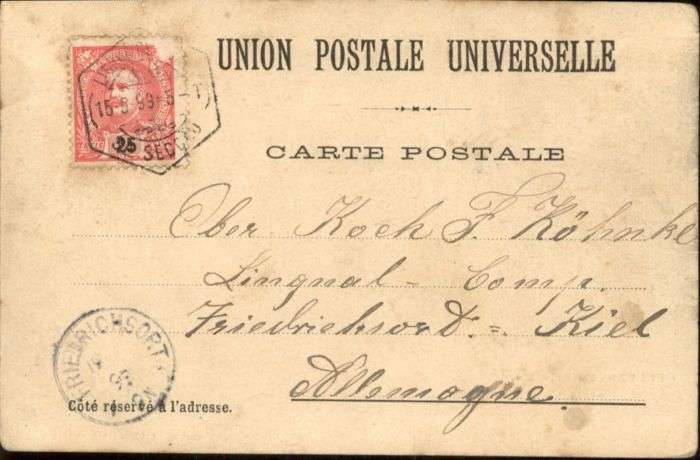 UNION POSTALE UNIVERSELLE
CARTE POSTALE
15-5 99-5-T
25
SECÇÃO
Ober Koch F. Köhnke
Lingnal-Comp.
Friedrichsord = Kiel
Allemagne.
FRIEDRICHSORT
Côté réservé à l'adresse.